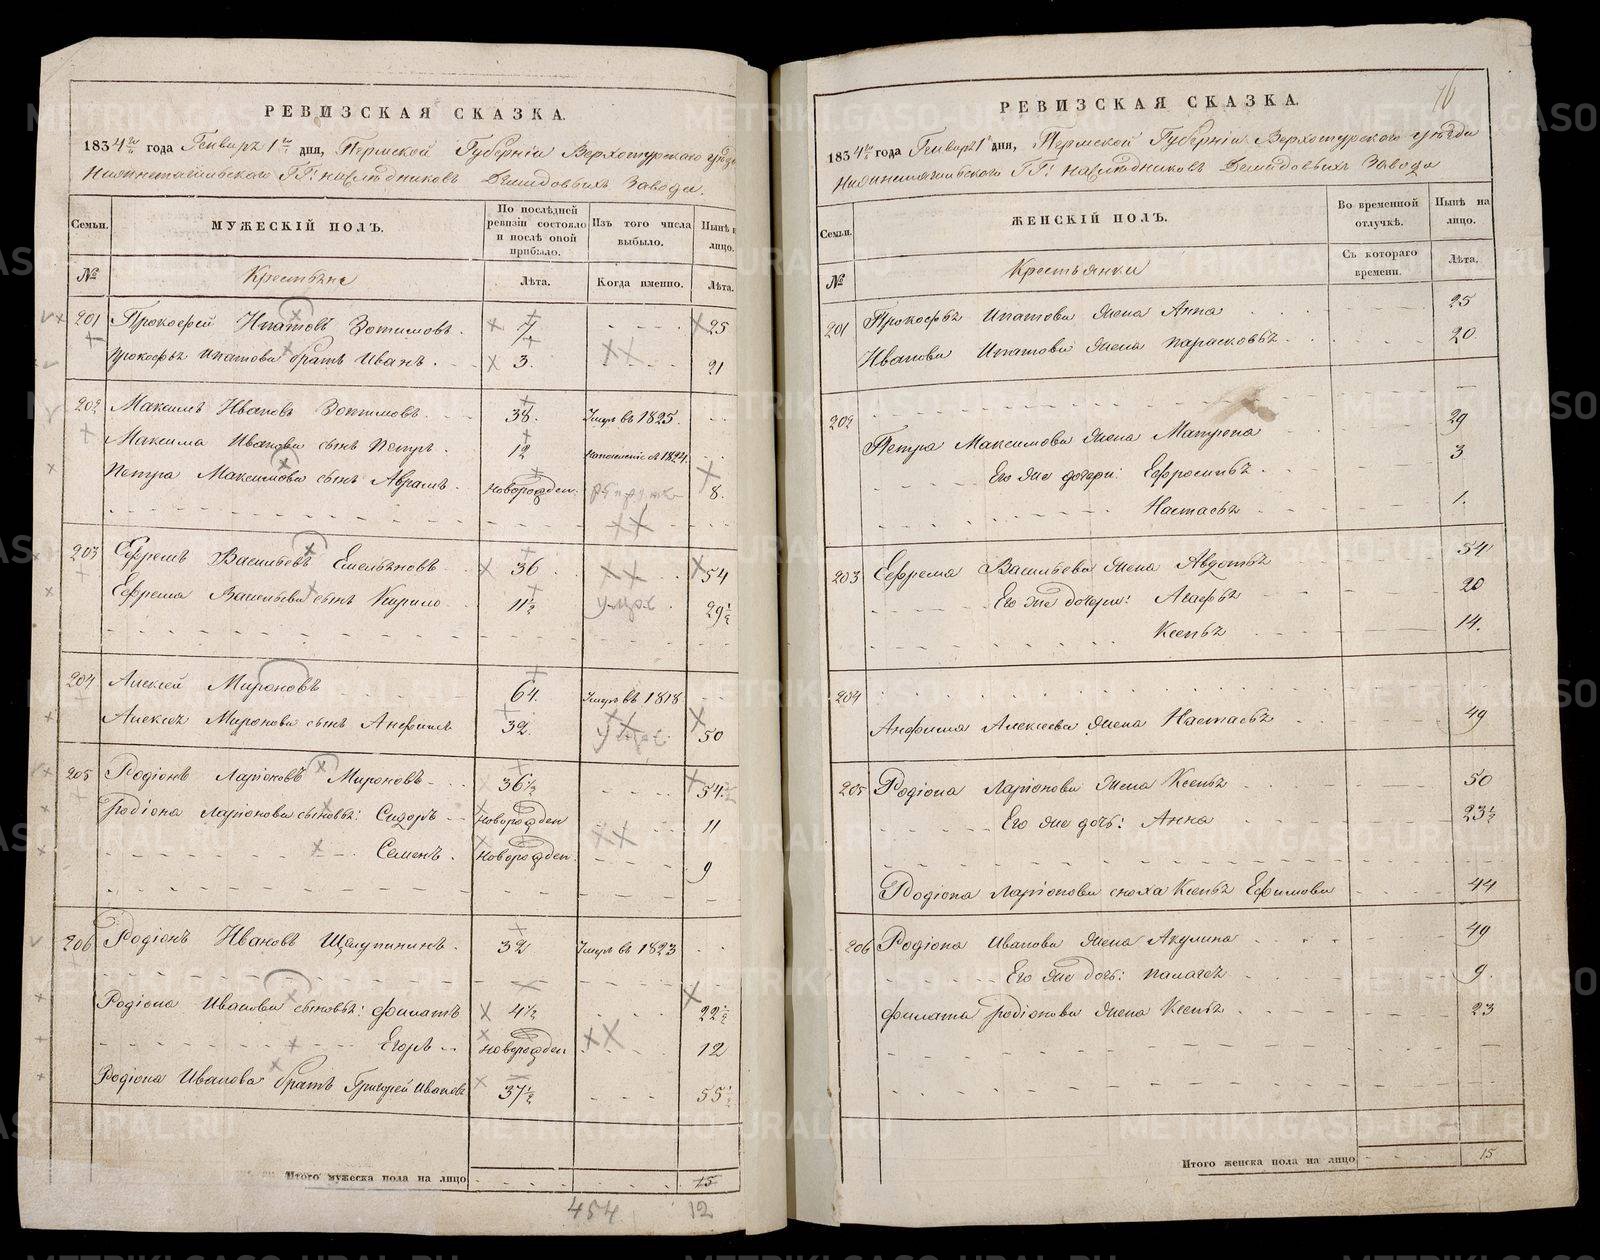 РЕВИЗСКАЯ СКАЗКА.
1834 года Генваря 1 дня, Пермской Губернiи Верхотурскаго
Нижнетагильскаго ГГ: наследниковъ Демидовыхъ Завода.
Семьи.
МУЖЕСКІЙ ПОЛЪ.
По послѣдней ревизіи состояло и послѣ оной прибыло.
Изъ того числа выбыло.
Нынѣ на лицо.
№
Крестьяне
Лѣта.
Когда именно.
Лѣта.
201 Прокофей Ипатовъ Зотимовъ. 7 25
Прокофья Ипатова братъ Иванъ. 3. 21
202 Максимъ Ивановъ Зотимовъ. 38. Умре въ 1825.
Максима Иванова сынъ Петръ. 12 1824.
Петра Максимова сынъ Аврамъ. новорожден: 8.
203 Ефремъ Васильевъ Емельяновъ 36 54
Ефрема Васильева сынъ Кирило 11½ умре 29½
204 Алексей Мироновъ 64. Умре въ 1818
Алексея Миронова сынъ Анфимъ 32. умре 50
205 Родіонъ Ларіоновъ Мироновъ 36½ 54½
Родіона Ларіонова сыновья: Сидоръ новорожден 11
Семенъ. новорожден. 9
206 Родіонъ Ивановъ Щалупининъ. 32 Умре въ 1823
Родіона Иванова сыновья: Филатъ 4½ 22½
Егоръ новорожден 12
Родіона Иванова братъ Григорей Ивановъ 37½ 55½
Итого мужеска пола на лицо 15
454 12
16
РЕВИЗСКАЯ СКАЗКА.
1834 года Генваря 1 дня, Пермской Губерніи Верхотурскаго уезда
Нижнетагильскаго ГГ: наследниковъ Демидовыхъ Завода
Семьи.
ЖЕНСКІЙ ПОЛЪ.
Во временной отлучкѣ.
Нынѣ на лицо.
№
Крестьянки
Съ котораго времени.
Лѣта.
201 Прокофья Ипатова жена Анна 25
Ивана Ипатова жена Парасковья 20
202
Петра Максимова жена Матрена 29
Его же дочери: Ефросинья 3
Настасья 1.
203 Ефрема Васильева жена Авдотья 54
Его же дочери: Агафья 20
Ксенья 14.
204
Анфима Алексеева жена Настасья 49
205 Родіона Ларіонова жена Ксенья 50
Его же дочь: Анна 23½
Родіона Ларіонова сноха Ксенья Ефимова 44
206 Родіона Иванова жена Акулина 49
Его же дочь: Палагея 9.
Филата Родіонова жена Ксенья 23
Итого женска пола на лицо 15
METRIKI.GASO-URAL.RU